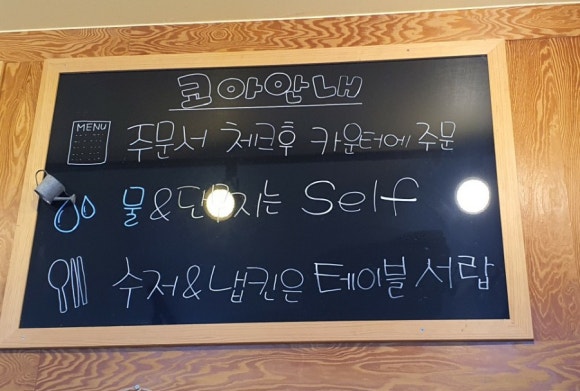 코아안내
MENU
주문서 체크후 카운터에 주문
물&단무지는 Self
수저&냅킨은 테이블 서랍